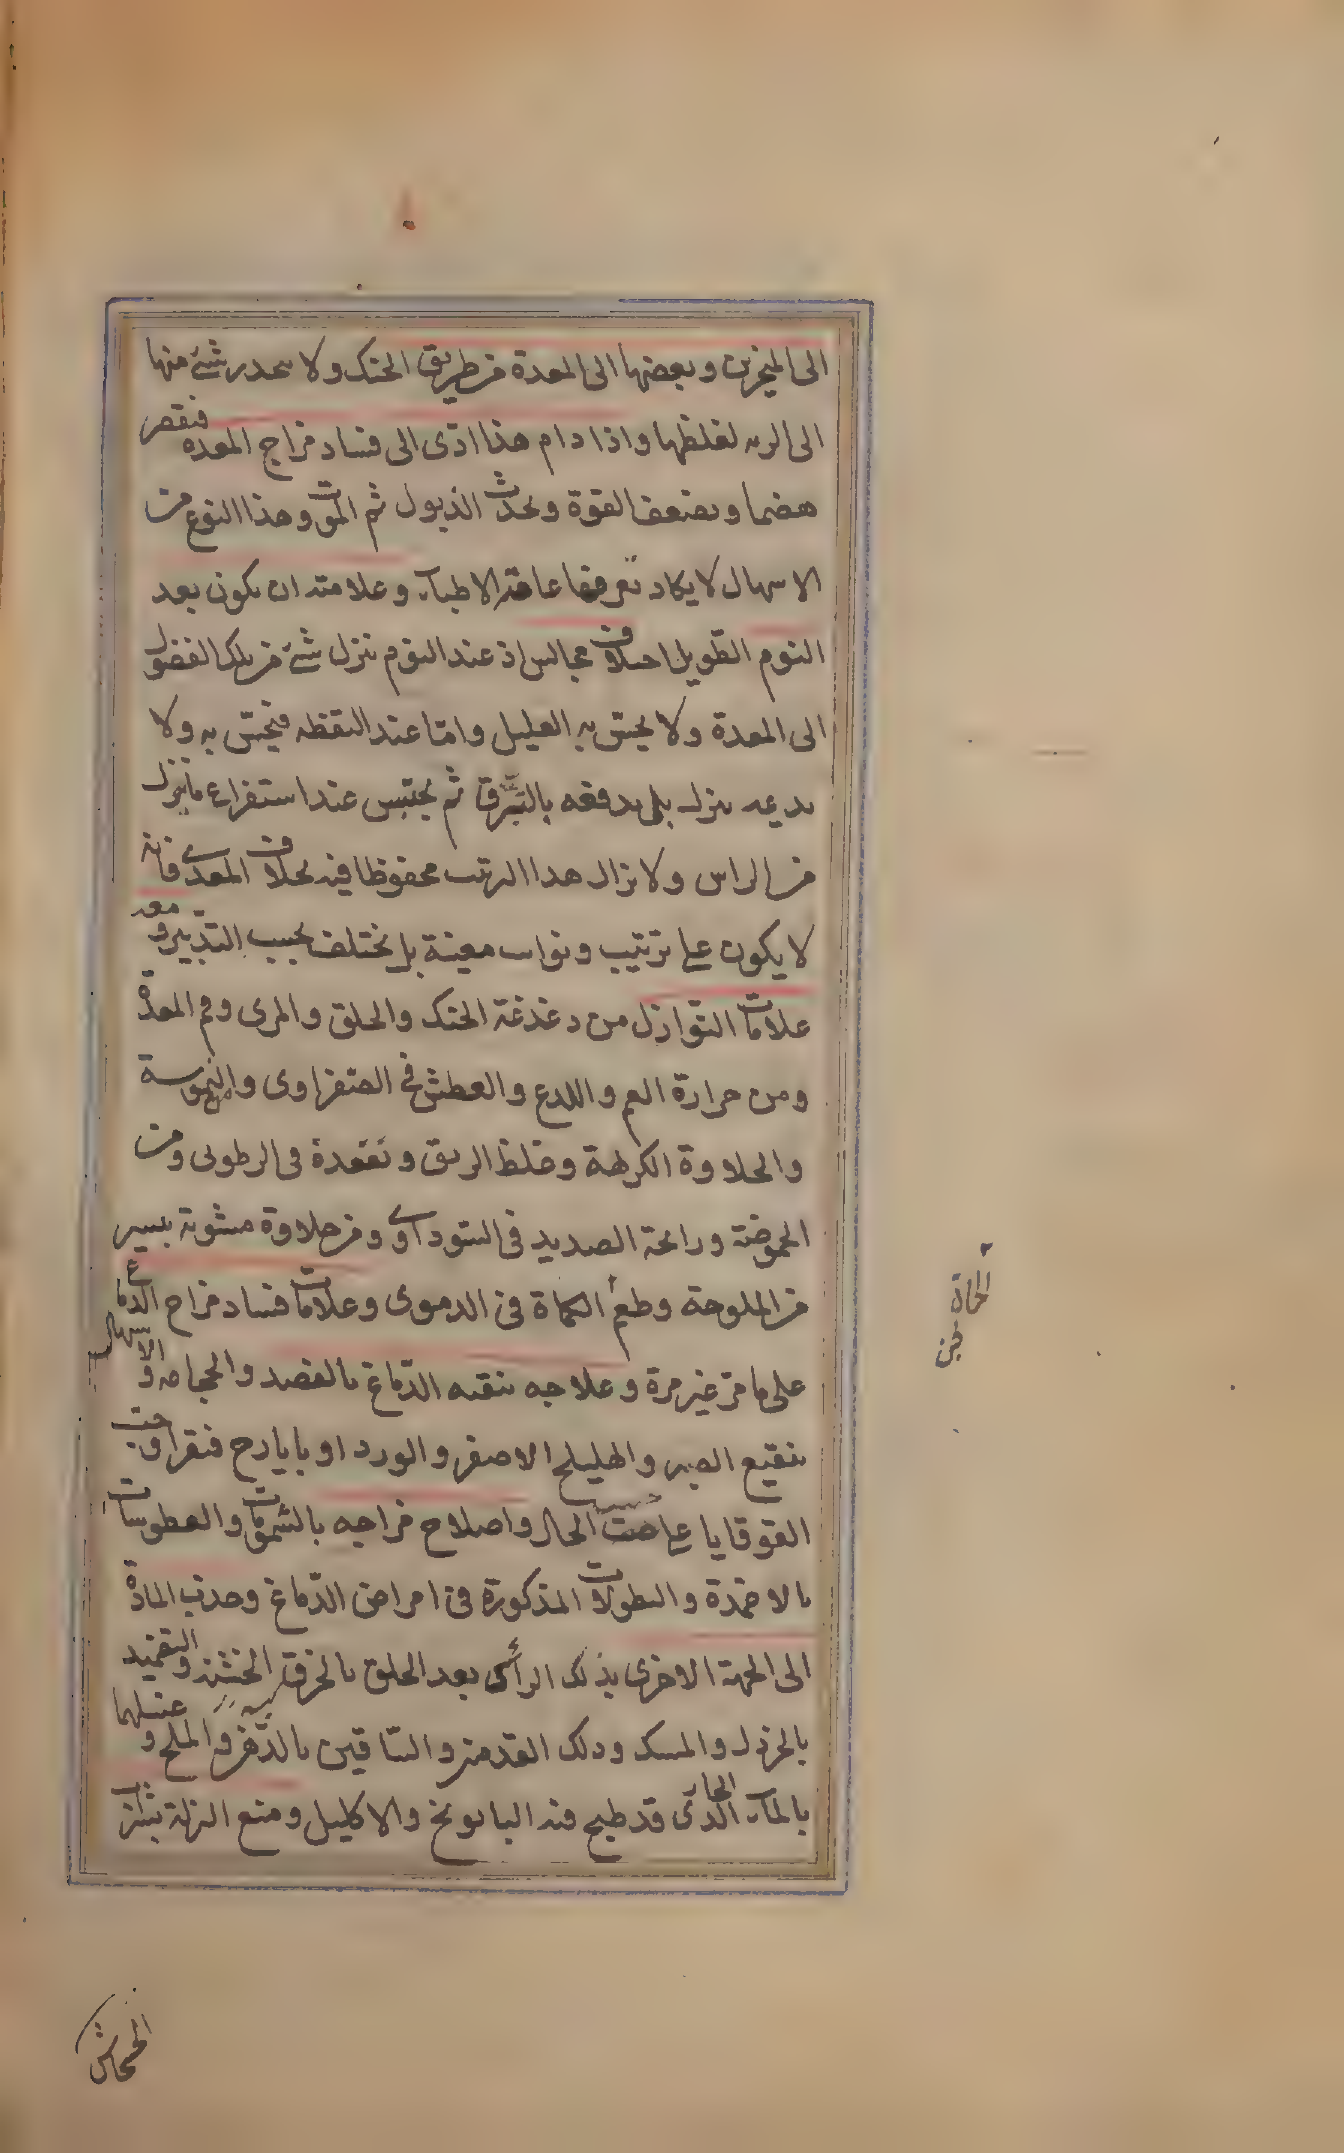 الى المنخرين وبعضها الى المعدة من طريق الحنك ولا ينحدر شئ منها
الى الريه لغلظها واذا دام هذا ادّى الى فساد مزاج المعده فنقص
هضما ويضعف القوة ويحدث الذبول ثم الموت وهذا النوع من
الاسهال لا يكاد تعرفها عامة الاطبآء وعلامته ان يكون بعد
النوم الطويل اختلاف مجالس اذ عند النوم ينزل شئ من تلك الفضول
الى المعدة ولا يحسّ به العليل وامّا عند اليقظه فيحسّ به ولا
يدعه ينزل بل يدفعه بالتبزّق ثم يحتبس عند استفراغ ما ينزل
من الراس ولا يزال هذا الترتيب محفوظا فيه بخلاف المعدى فانه
لا يكون على ترتيب ونوايب معينة بل يختلف بحسب التدبير و معه
علامات النوازل من دغدغة الحنك والحلق والمرى وفم المعدة
ومن حرارة الفم واللذع والعطش فى الصفراوى و
والحلاوة الكريهة وغلظ الريق وتعقده فى الرطوبى ومن
الحموضة ورائحة الصديد فى السوداوى ومن حلاوة مشوبة بيسير
من الملوحة وطعم الكمأة فى الدموى وعلامات فساد مزاج الدماغ
على ما مرّ غير مرة وعلاجه تنقيه الدّماغ بالفصد والحجامه و الاسهال
بنقيع الصبر والهليلج الاصفر والورد او بايارج فيقرا وحب
القوقايا على حسب الحال واصلاح مزاجه بالشمومات والعطوسات
بالاضمدة والنطولات المذكورة فى امراض الدّماغ وجذب المادّة
الى الجهة الاخرى بذلك الرأس بعد الحلق بالخرق الخشنة والتضميد
بالخردل والمسك ودلك القدمين والسّاقين بالدّهن والملح و غسلهما
بالمآء الحار الّذى قد طبخ فيه البابونج والاكليل ومنع النزلة بشراب
الخشخاش
الكمأة